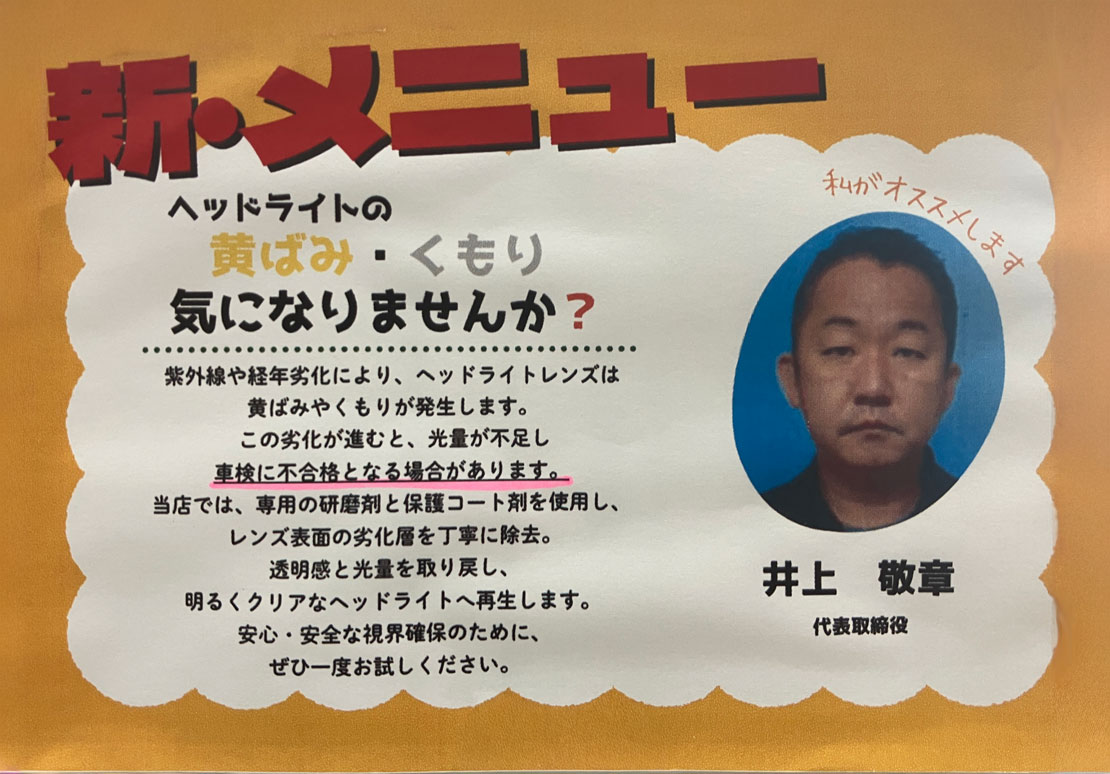 新・メニュー
ヘッドライトの
黄ばみ・くもり
気になりませんか?
紫外線や経年劣化により、ヘッドライトレンズは
黄ばみやくもりが発生します。
この劣化が進むと、光量が不足し
車検に不合格となる場合があります。
当店では、専用の研磨剤と保護コート剤を使用し、
レンズ表面の劣化層を丁寧に除去。
透明感と光量を取り戻し、
明るくクリアなヘッドライトへ再生します。
安心・安全な視界確保のために、
ぜひ一度お試しください。
私がオススメします
井上 敬章
代表取締役